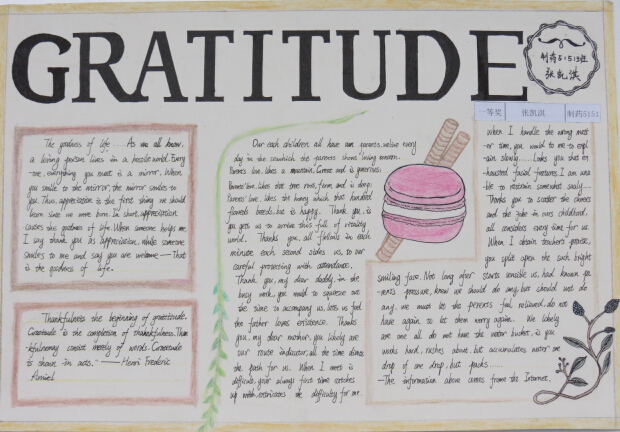 GRATITUDE
制药5151班
张凯淇
一等奖 张凯淇 制药5151
The goodness of life.....As we all know,
a living person lives in a hostile world. Every
one, everything you meet is a mirror. When
you smile to the mirror, the mirror smiles to
you. Thus, appreciation is the first thing we should
learn since we were born. In short, appreciation
causes the goodness of life. When someone helps me,
I say thank you as appreciation, make someone
smiles to me and say you are welcome — That
is the goodness of life.
Thankfulness the beginning of gratitude.
Gratitude is the completion of thankfulness. Than
kfulness may consist merely of words. Gratitude
is shown in acts." — Henri Frederic
Amiel
Our each children all have own parents, we live every
day in the world which the parents show loving concern.
Parents' love, likes a mountain, Greve and is generous;
Parents' love, likes that tree root, firm and is deep;
Parents' love, likes the honey which that hundred
flowers breeds, but is happy. Thank you, is
you gets us to arrive this full of vitality
world. Thanks you, all details in each
minute each second sides us, to our
careful protecting with attendance.
Thank you, my dear daddy, in the
busy work, you need to squeeze out
the time to accompany us, lets us feel
the father loves existence. Thanks
you, my dear mother, you likely are
our route indicator, all the time directs
the path for us. When I meet is
difficult, you always first time stretches
up with, extricates me difficulty for me.
When I handle the wrong matt
er time, you would to me to expl
ain slowly.... Looks you that ex-
hausted facial features, I am una
ble to restrain somewhat sadly....
Thanks you to scatter the cheers
and the joke in ours childhood,
all considers every time for us.
When I obtain teacher's praise,
you split open the such bright
smiling face. Not long after starts sensible us, had known pa
-rents pressure, knew us should do any, but should not do
any, we must let the parents feel relieved, do not
have again to let them worry again. We likely
are one all do not have the water bucket, is you
works hard, rushes about, but accumulates water one
drop of one drop, but packs.....
—The information above comes from the Internet.